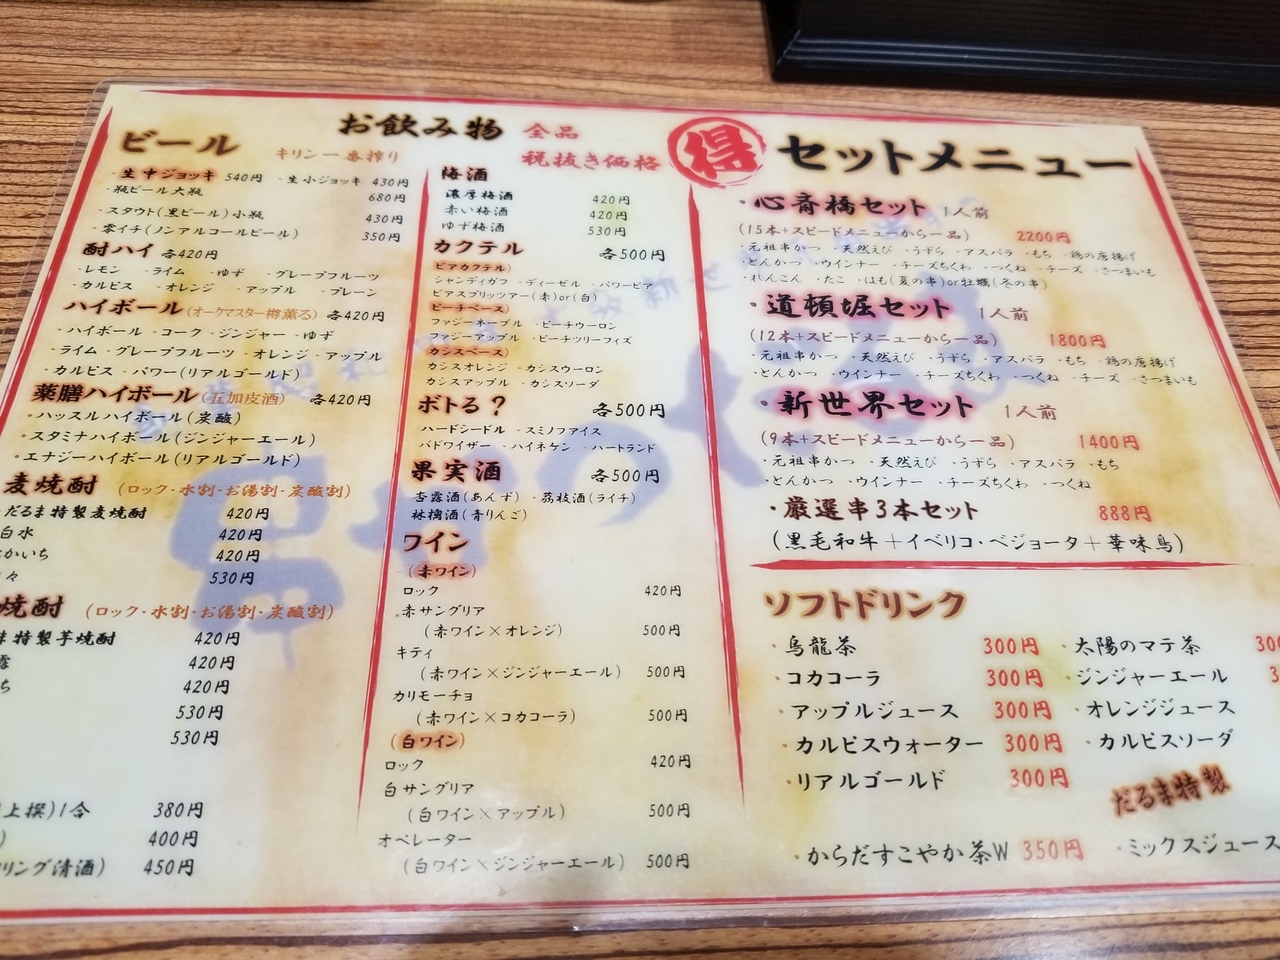 お飲み物 全品
税抜き価格
ビール キリン一番搾り
・生中ジョッキ 540円 ・生小ジョッキ 430円
・瓶ビール大瓶 680円
・スタウト(黒ビール)小瓶 430円
・零イチ(ノンアルコールビール) 350円
酎ハイ 各420円
・レモン ・ライム ・ゆず ・グレープフルーツ
・カルピス ・オレンジ ・アップル ・プレーン
ハイボール(オークマスター樽薫る) 各420円
・ハイボール ・コーク ・ジンジャー ・ゆず
・ライム ・グレープフルーツ ・オレンジ ・アップル
・カルピス ・パワー(リアルゴールド)
薬膳ハイボール(五加皮酒) 各420円
・ハッスルハイボール(炭酸)
・スタミナハイボール(ジンジャーエール)
・エナジーハイボール(リアルゴールド)
麦焼酎 (ロック・水割・お湯割・炭酸割)
・だるま特製麦焼酎 420円
白水 420円
かいち 420円
々 530円
焼酎 (ロック・水割・お湯割・炭酸割)
ま特製芋焼酎 420円
露 420円
ち 420円
530円
530円
上撰)1合 380円
) 400円
リング清酒) 450円
梅酒
濃厚梅酒 420円
赤い梅酒 420円
ゆず梅酒 530円
カクテル 各500円
ビアカクテル)
シャンディガフ ・ディーゼル ・パワービア
ビアスプリッツアー(赤)or(白)
ピーチベース)
ファジーネーブル ・ピーチウーロン
ファジーアップル ・ピーチツリーフィズ
カシスベース)
カシスオレンジ ・カシスウーロン
カシスアップル ・カシスソーダ
ボトる? 各500円
ハードシードル ・スミノフアイス
バドワイザー ・ハイネケン ・ハートランド
果実酒 各500円
杏露酒(あんず) ・茘枝酒(ライチ)
林檎酒(青りんご)
ワイン
(赤ワイン)
ロック 420円
赤サングリア
(赤ワイン×オレンジ) 500円
キティ
(赤ワイン×ジンジャーエール) 500円
カリモーチョ
(赤ワイン×コカコーラ) 500円
(白ワイン)
ロック 420円
白サングリア
(白ワイン×アップル) 500円
オペレーター
(白ワイン×ジンジャーエール) 500円
得 セットメニュー
・心斎橋セット 1人前
(15本+スピードメニューから一品) 2200円
・元祖串かつ ・天然えび ・うずら ・アスパラ ・もち ・鶏の唐揚げ
・とんかつ ・ウインナー ・チーズちくわ ・つくね ・チーズ ・さつまいも
・れんこん ・たこ ・はも(夏の串)or牡蠣(冬の串)
・道頓堀セット 1人前
(12本+スピードメニューから一品) 1800円
・元祖串かつ ・天然えび ・うずら ・アスパラ ・もち ・鶏の唐揚げ
・とんかつ ・ウインナー ・チーズちくわ ・つくね ・チーズ ・さつまいも
・新世界セット 1人前
(9本+スピードメニューから一品) 1400円
・元祖串かつ ・天然えび ・うずら ・アスパラ ・もち
・とんかつ ・ウインナー ・チーズちくわ ・つくね
・厳選串3本セット 888円
(黒毛和牛+イベリコ・ベジョータ+華味鳥)
ソフトドリンク
・烏龍茶 300円 ・太陽のマテ茶 300
・コカコーラ 300円 ・ジンジャーエール 3
・アップルジュース 300円 ・オレンジジュース
・カルピスウォーター 300円 ・カルピスソーダ
・リアルゴールド 300円
だるま特製
・からだすこやか茶W 350円 ・ミックスジュース